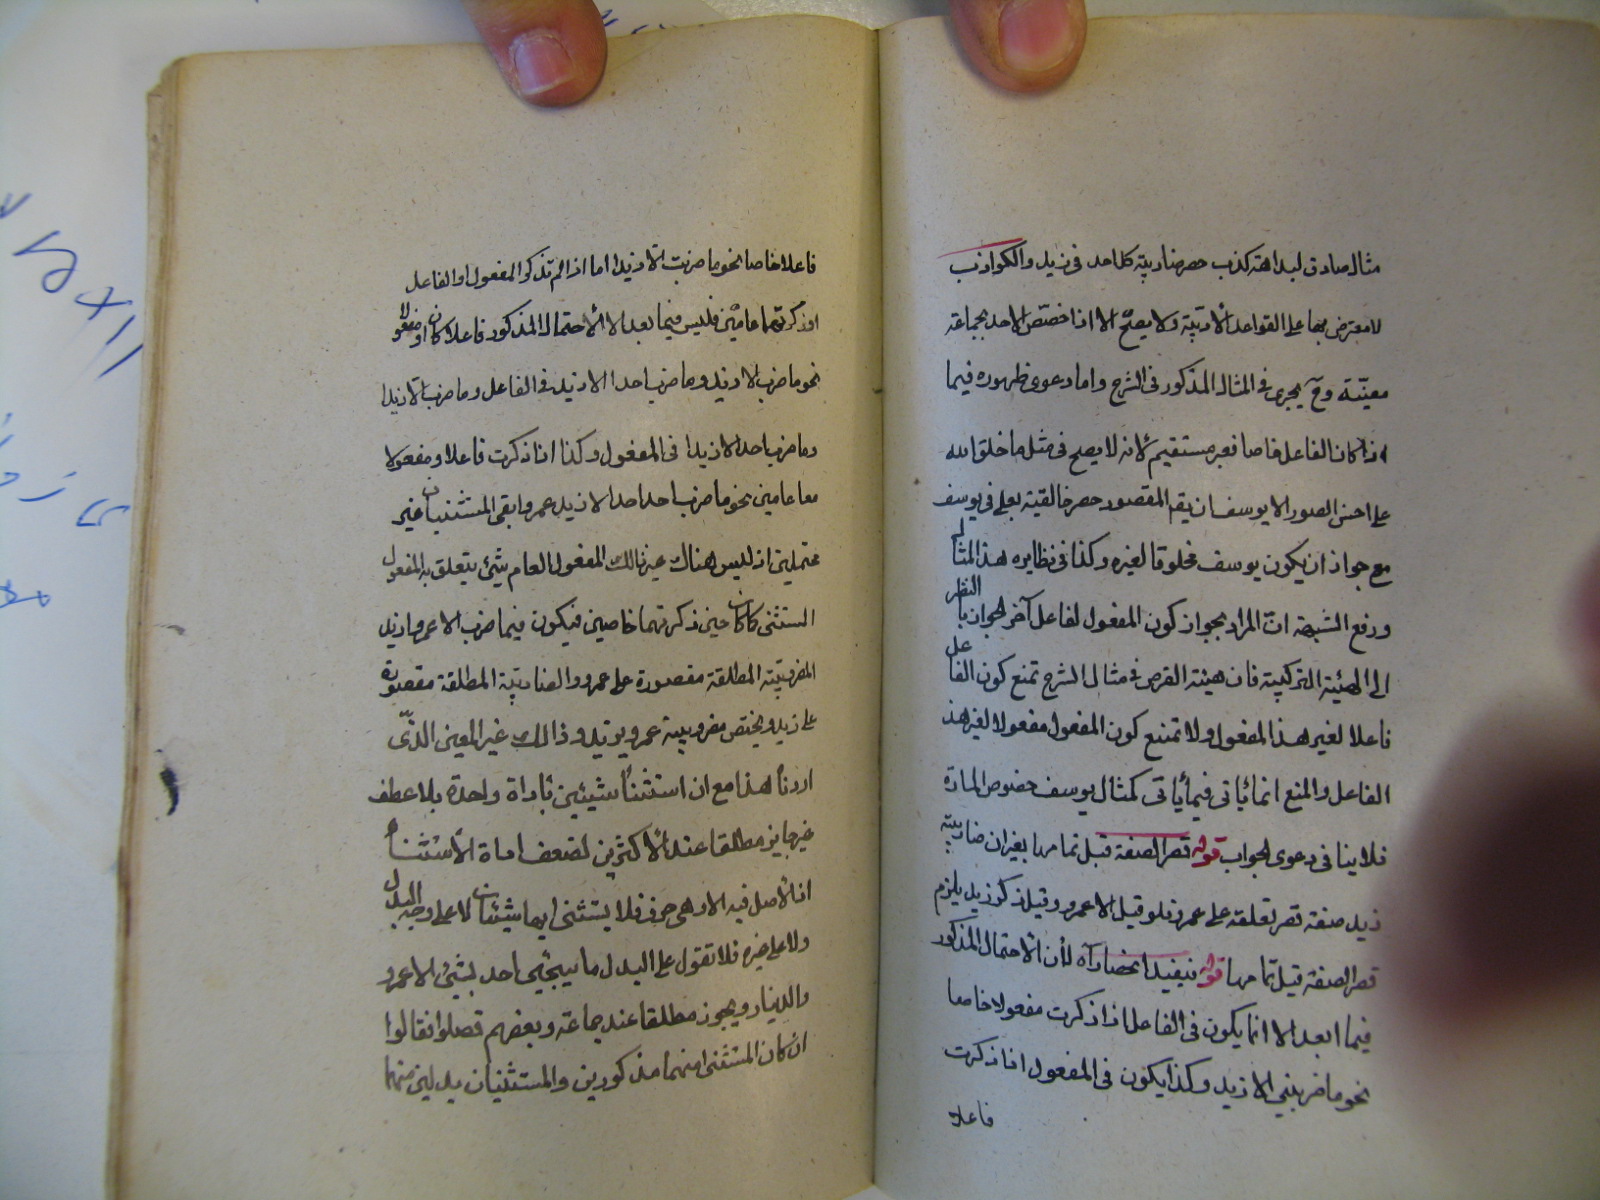 مثال صادق لبداهة كذب حصر ضاربية كل احد في زيد والكواذب
لا معترض بها على القواعد الأدبية ولا يصح الا اذا خصّص الاحد بجماعة
معيّنة وح يجرى في المثال المذكور في الشرح واما دعوى ظهوره فيما
اذا كان الفاعل خاصا فغير مستقيم لأنه لا يصح في مثل ما خلق الله
على احسن الصور الا يوسف ان يقم المقصور حصر خالقيته تعلى في يوسف
مع جواز ان يكون يوسف مخلوقا لغيره وكذا في نظايره هذا المثال
ورفع الشبهة انّ المراد بجواز كون المفعول لفاعل آخر الجواز بالنظر
الى الهيئة التركيبية فان هيئة القصر في مثال الشرح تمنع كون الفاعل
فاعلا لغير هذا المفعول ولا تمنع كون المفعول مفعولا لغير هذ
الفاعل والمنع انما يأتي فيما يأتي كمثال يوسف خصوص المادّة
فلا ينافى دعوى الجواب قوله قصر الصفة قبل تمامها بغير ان ضاربية
زيد صفة قصر تعلقه على عمرو فلو قيل الا عمرو وقيل ذكر زيد يلزم
قصر الصفة قبل تمامها قوله فيفيد انحصاراه لأن الأحتمال المذكور
فيما بعد الا انما يكون في الفاعل اذا ذكرت مفعولا خاصا
نحو ما ضربني الا زيد وكذا يكون في المفعول اذا ذكرت
فاعلا
فاعلا خاصا نحو ما ضربت الّا زيدا اما اذا لم تذكر المفعول او الفاعل
او ذكرتهما عامّين فليس فيما بعد الا الأحتمال المذكور فاعلا كان او مفعولا
نحو ما ضرب الا زيد وما ضرب احدا الا زيد في الفاعل وما ضرب الّا زيدا
وما ضرب احد الا زيدا في المفعول وكذا اذا ذكرت فاعلا ومفعولا
معا عامين نحو ما ضرب احد احدا الا زيد عمروا بقى المستثنيان غير
محتملين اذ ليس هناك غير ذالك المفعول العام شئ يتعلق به المفعول
المستثنى كما كان حين ذكرتهما خاصين فيكون فيما ضرب الا عمروا زيد
المضروبية المطلقة مقصورة على عمرو والضاربية المطلقة مقصورة
على زيد ويختص مضروبية عمرو بزيد وذالك غير المعنى الذّى
اردنا هذا مع ان استثنأ شيئين بأداة واحدة بلا عطف
غير جايز مطلقا عند الأكثرين لضعف اداة الأستثنأ
اذ الأصل فيه الا وهى حرف فلا يستثنى بها شيئان لا على وجه البدل
ولا على غيره فلا تقول على البدل ما يبجئى احد بشئ الا عمرو
والدينار ويجوز مطلقا عند جماعة وبعضهم فصلوا فقالوا
ان كان المستثنى منهما مذكورين والمستثنيان بدلين منهما